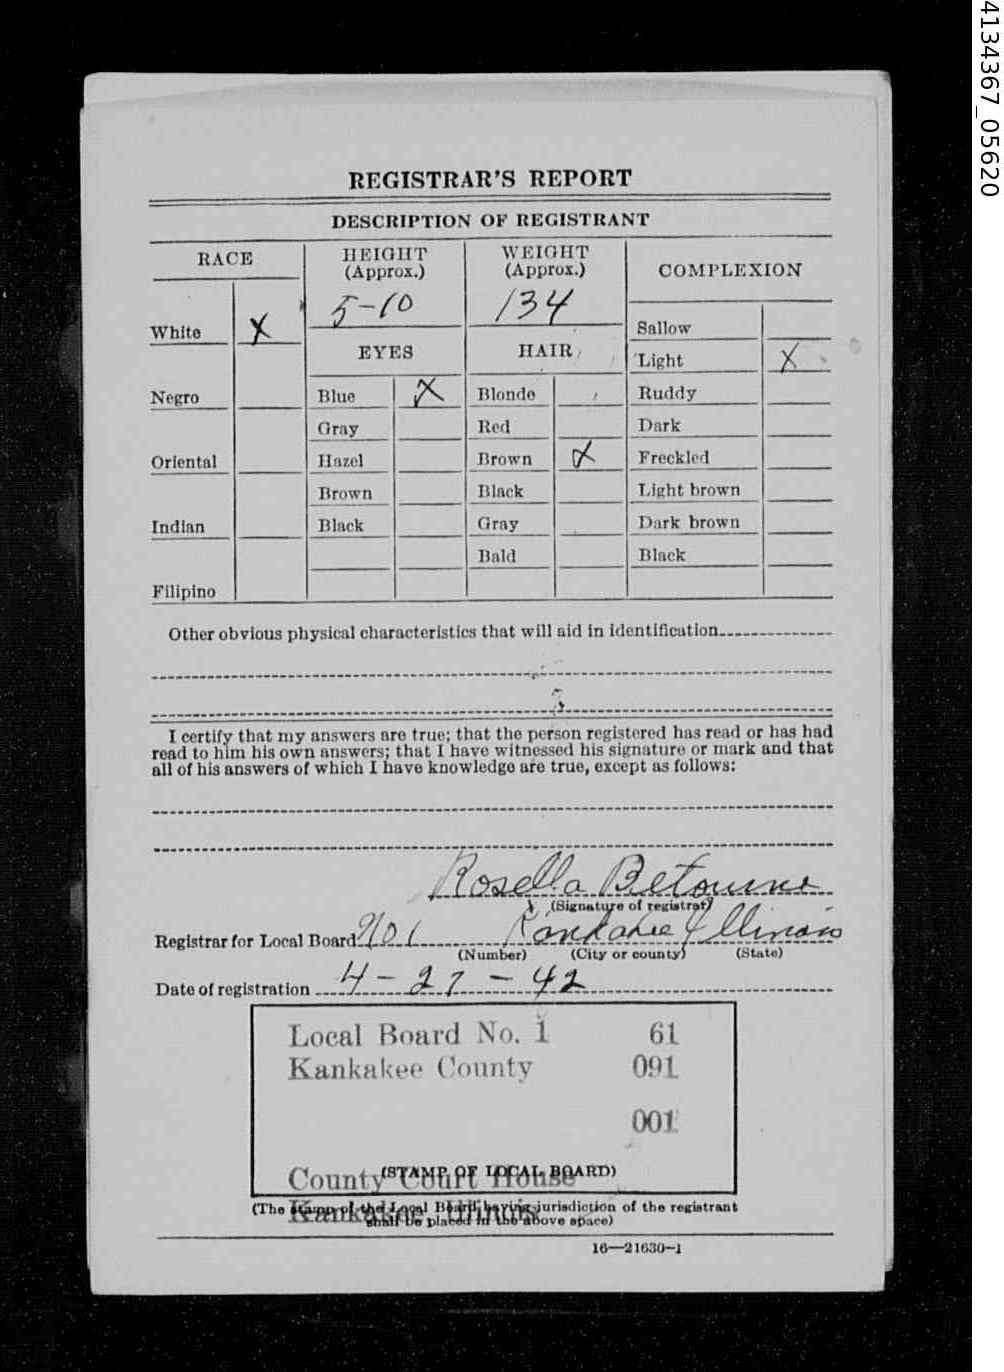 4134367_05620
REGISTRAR'S REPORT
DESCRIPTION OF REGISTRANT
RACE
HEIGHT
(Approx.)
WEIGHT
(Approx.)
COMPLEXION
5-10
134
White X
EYES
HAIR
Sallow
Light X
Negro
Blue X
Blonde
Ruddy
Gray
Red
Dark
Oriental
Hazel
Brown X
Freckled
Brown
Black
Light brown
Indian
Black
Gray
Dark brown
Bald
Black
Filipino
Other obvious physical characteristics that will aid in identification
I certify that my answers are true; that the person registered has read or has had
read to him his own answers; that I have witnessed his signature or mark and that
all of his answers of which I have knowledge are true, except as follows:
Rosella Betourne
(Signature of registrar)
Registrar for Local Board No 1 Kankakee Illinois
(Number) (City or county) (State)
Date of registration 4-27-42
Local Board No. 1 61
Kankakee County 091
001
County Court House
(STAMP OF LOCAL BOARD)
Kankakee Illinois
(The stamp of the Local Board having jurisdiction of the registrant
shall be placed in the above space)
16—21630-1